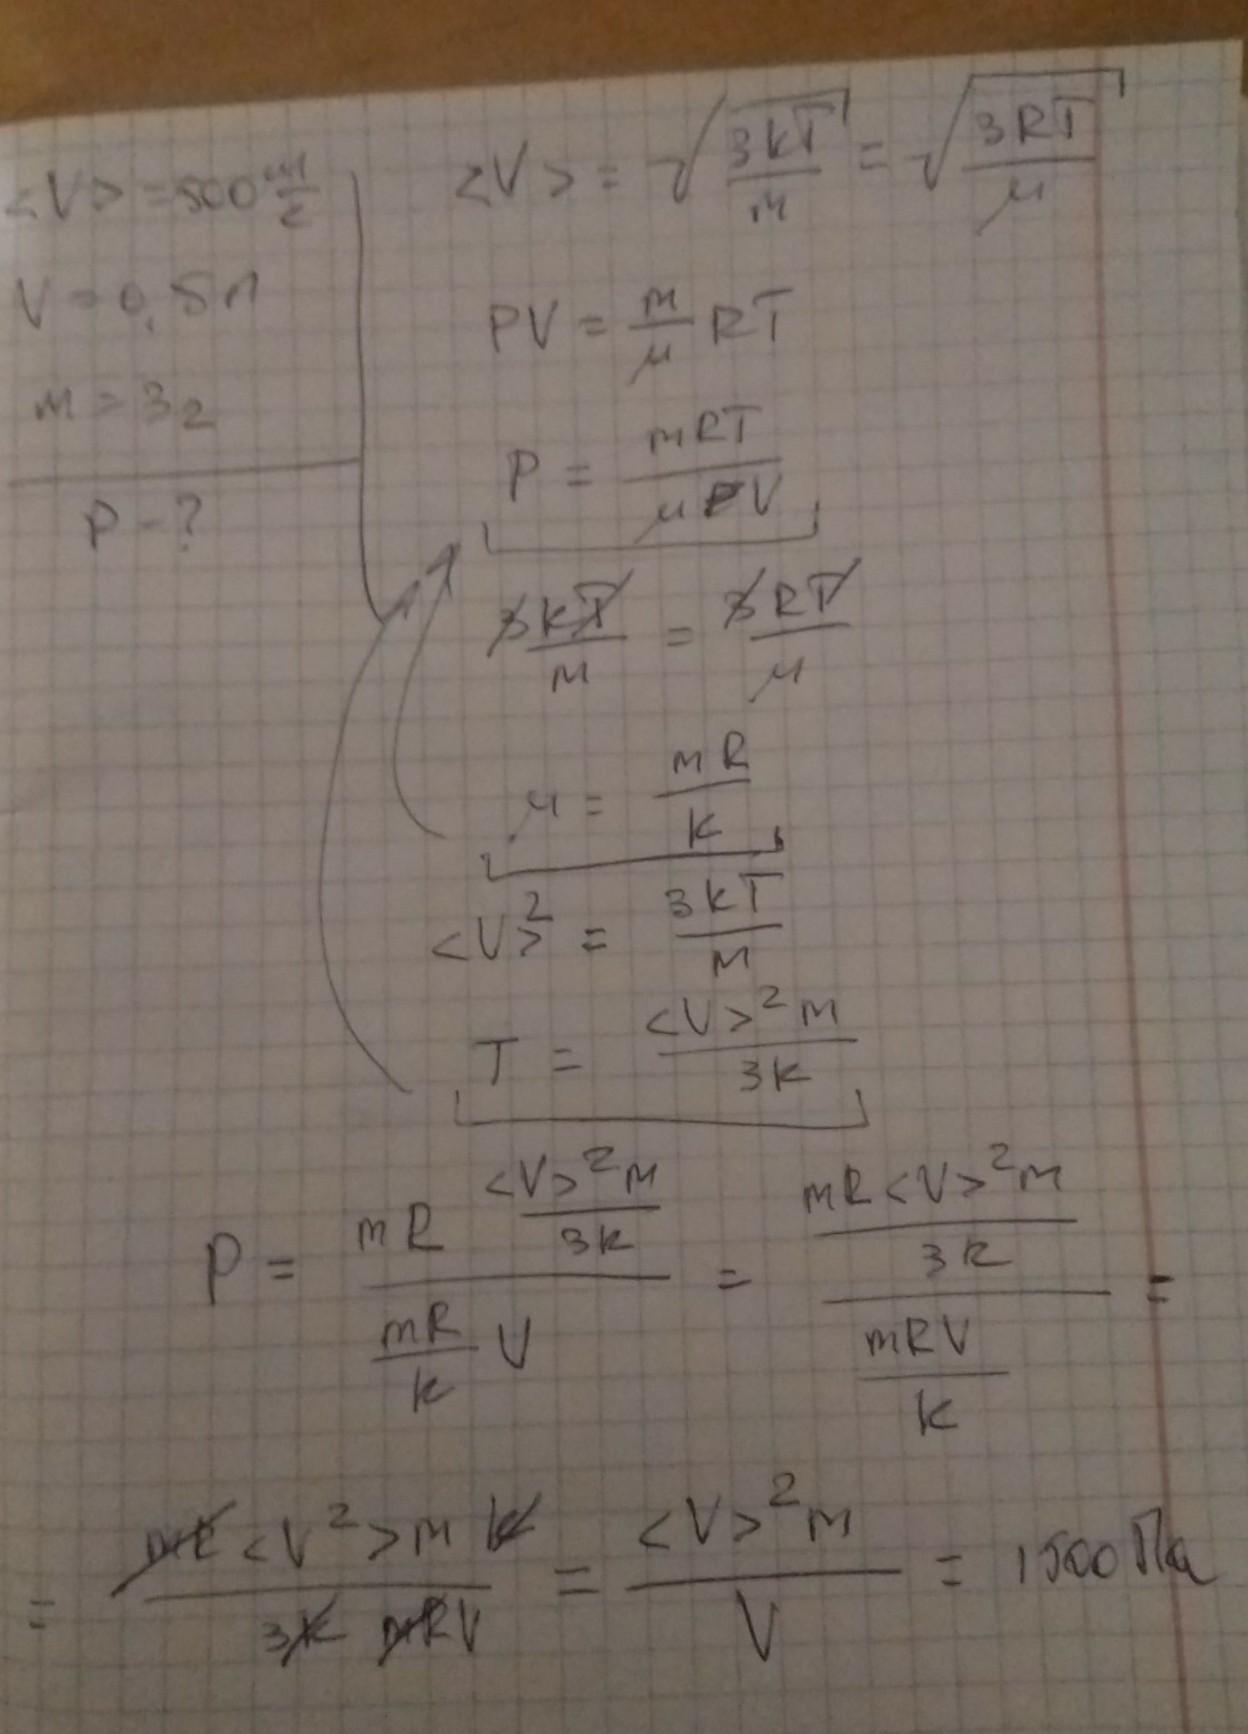 <V> = 500 м/с
V = 0,5л
m = 3г
P - ?
<V> = √(3kT/m) = √(3RT/μ)
PV = m/μ RT
P = mRT/μV
3kT/m = 3RT/μ
μ = mR/k
<V>² = 3kT/m
T = <V>²m/3k
P = (mR <V>²m/3k)/(mR/k V) = (mR<V>²m/3k)/(mRV/k) =
= mR<V²>m k/3k mRV = <V>²m/V = 1500 Па